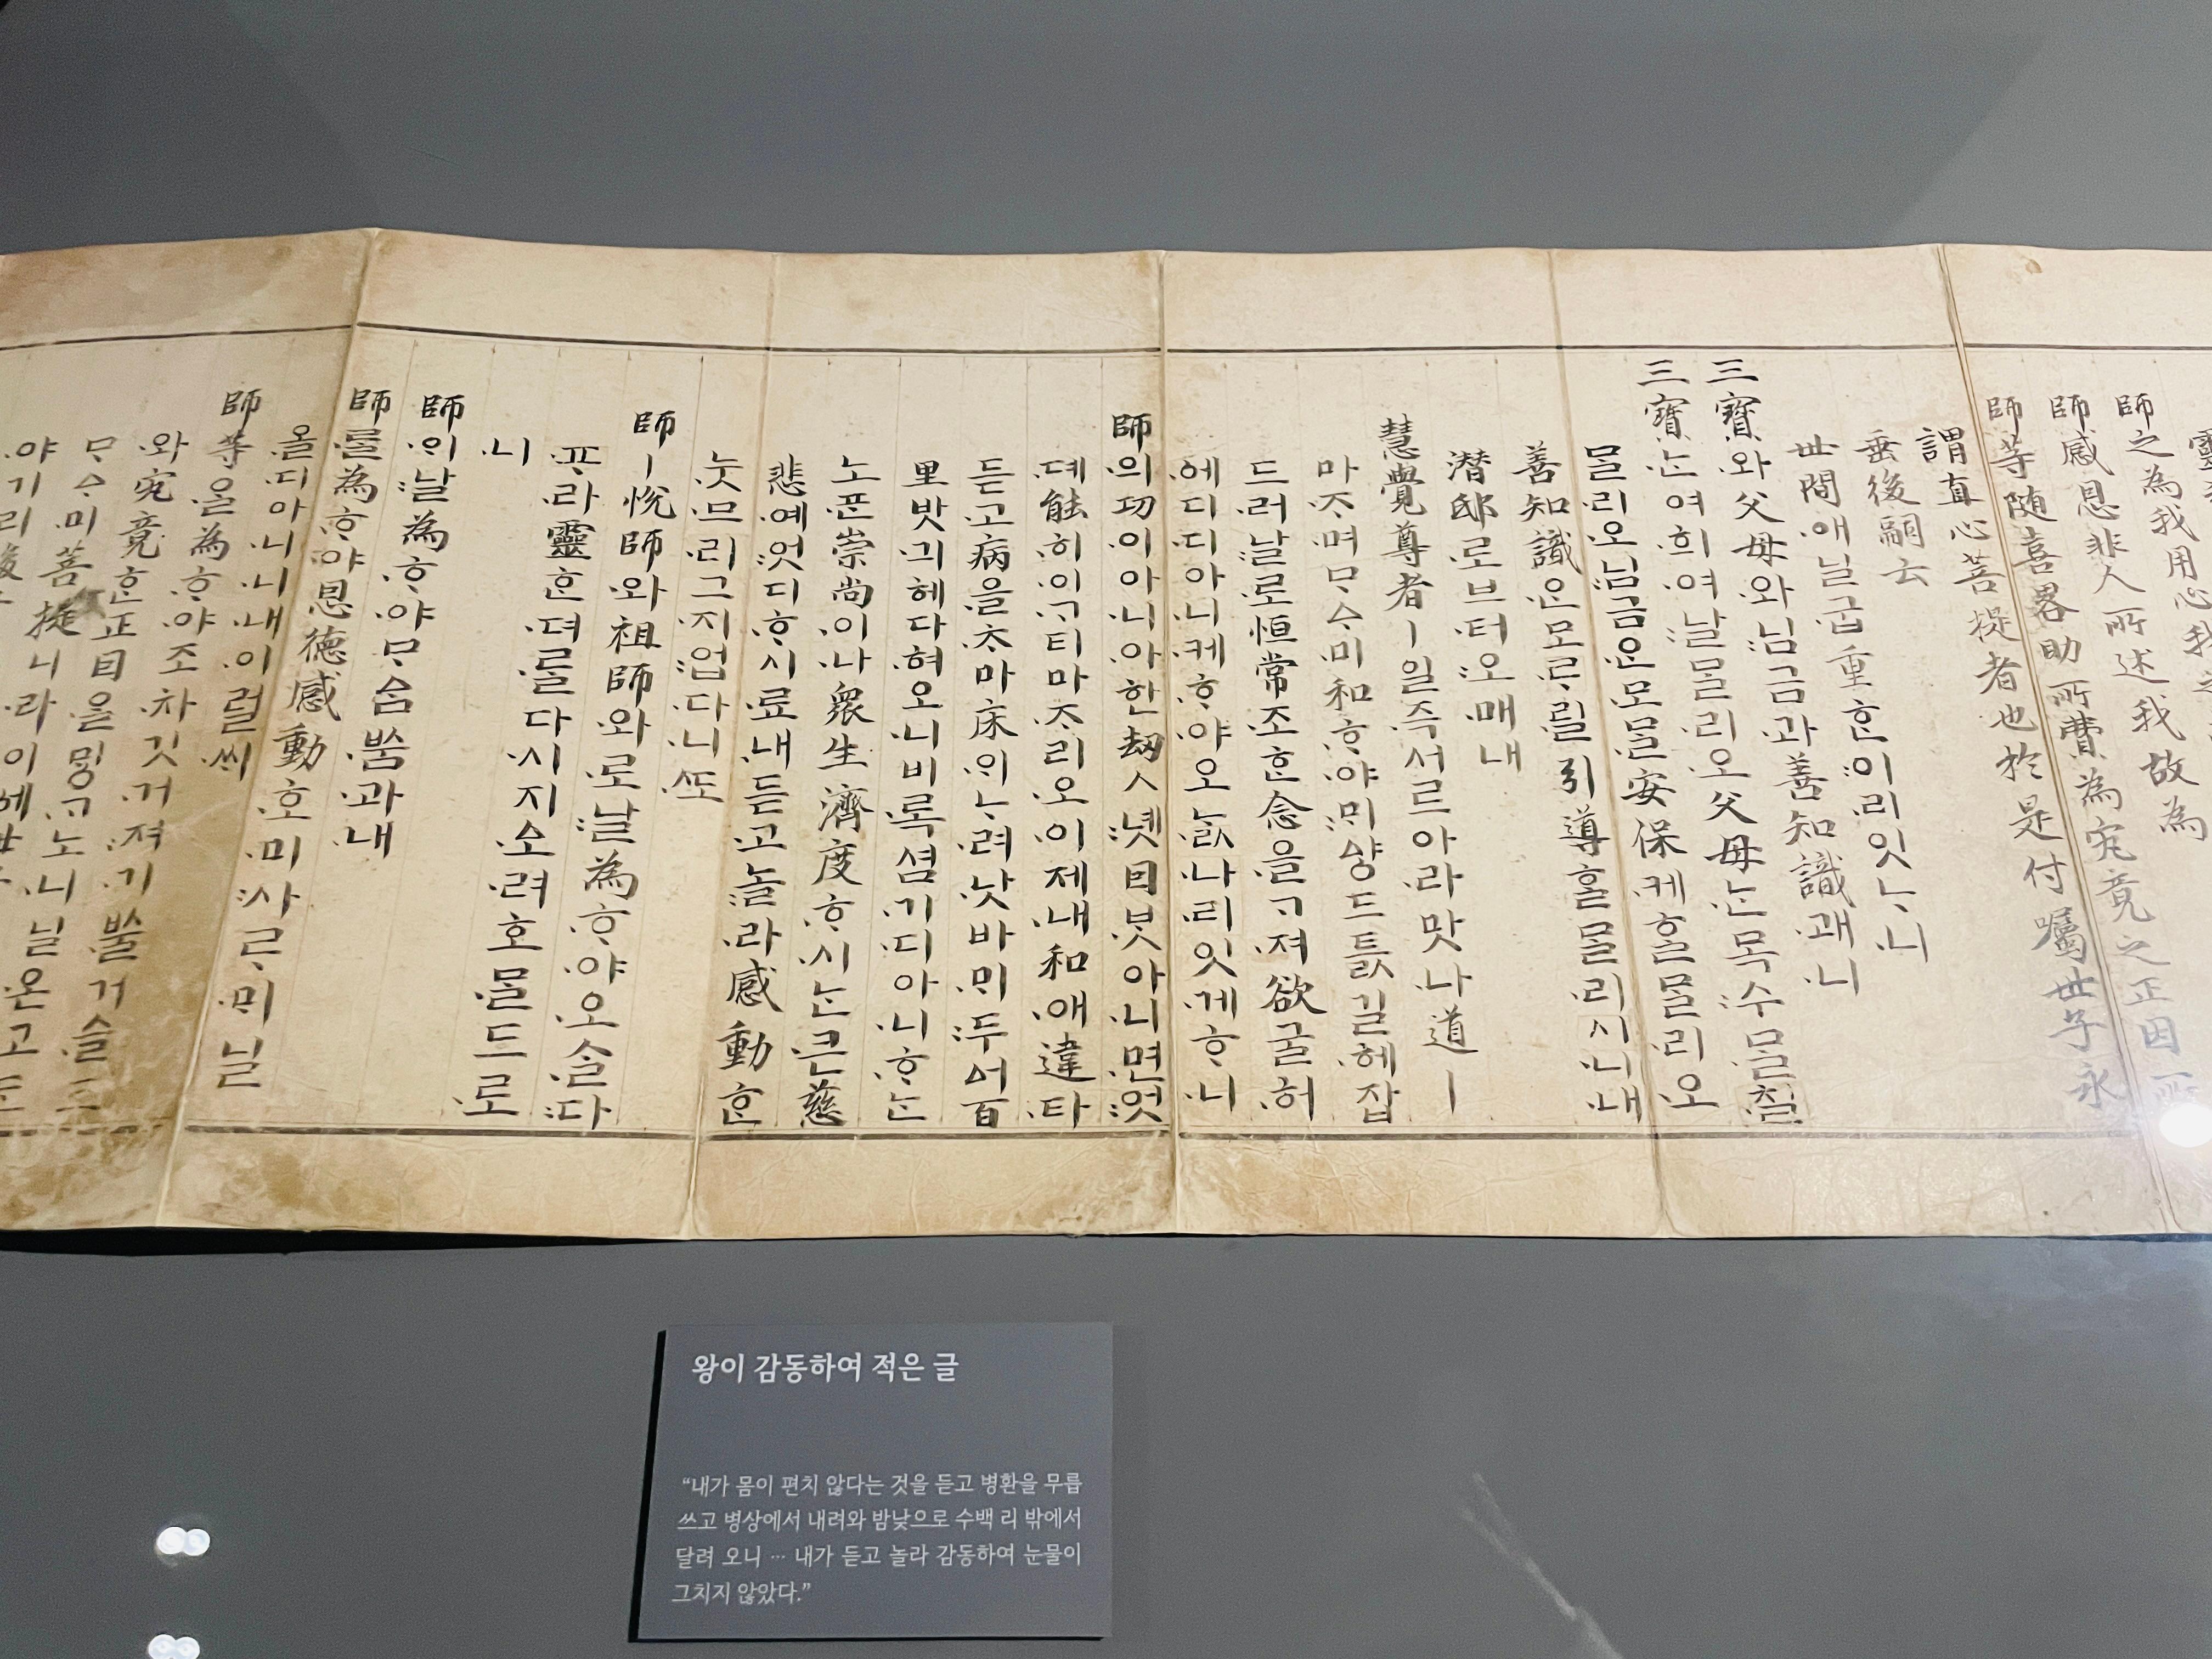 師之為我用心
師感恩非人所述我故為
師等随喜畧助所費為究竟之正因所
謂直心菩提者也於是付囑世子永
垂後嗣云
世間애닐굽重ᄒᆞᆫ이리잇ᄂᆞ니
三寶와父母와님금과善知識괘니
三寶ᄂᆞᆫ여희여날믈리오父母ᄂᆞᆫ목수믈칠
믈리오님금은모믈安保케ᄒᆞᆯ믈리오
善知識은모ᄅᆞ릴引導ᄒᆞᆯ믈리시니내
潜邸로브터오매내
慧覺尊者ㅣ일즉서르아라맛나道ㅣ
마ᄌᆞ며ᄆᆞᅀᆞ미和ᄒᆞ야ᄆᆡ샹드틄길헤잡
드러날로恒常조ᄒᆞᆫ念을ᄀᆞ져欲굴허
에디디아니케ᄒᆞ야오ᄂᆞᆳ나리잇게ᄒᆞ니
師의功이아니아한劫ㅅ녯因곳아니면엇
뎨能히이ᄀᆞ티마ᄌᆞ리오이제내和애違타
듣고病을ᄎᆞ마床의ᄂᆞ려낫바ᄆᆡ두ᅀᅥ百
里밧긔헤다혀오니비록셤기디아니ᄒᆞᄂᆞᆫ
노ᄑᆞᆫ崇尚이나衆生濟度ᄒᆞ시ᄂᆞᆫ큰慈
悲예엇디ᄒᆞ시료내듣고놀라感動ᄒᆞᆫ
눗므리그지업다니ᄯᅩ
師ㅣ悅師와祖師와로날為ᄒᆞ야오ᄉᆞᆯ다
ᄑᆞ라靈ᄒᆞᆫ뎌를다시지소려호믈드로
니
師의날為ᄒᆞ야ᄆᆞᅀᆞᆷᄡᅮᆷ과내
師를為ᄒᆞ야恩德感動호미사ᄅᆞᄆᆡ닐
올디아니니내이럴ᄊᆡ
師等을為ᄒᆞ야조차깃거져기ᄡᅳᆯ거슬도
와究竟ᄒᆞᆫ正因을ᄆᆡᇰᄀᆞ노니닐온고ᄃᆞᆫ
ᄆᆞᅀᆞ미菩提니라이에
왕이 감동하여 적은 글
“내가 몸이 편치 않다는 것을 듣고 병환을 무릅
쓰고 병상에서 내려와 밤낮으로 수백 리 밖에서
달려 오니 … 내가 듣고 놀라 감동하여 눈물이
그치지 않았다.”